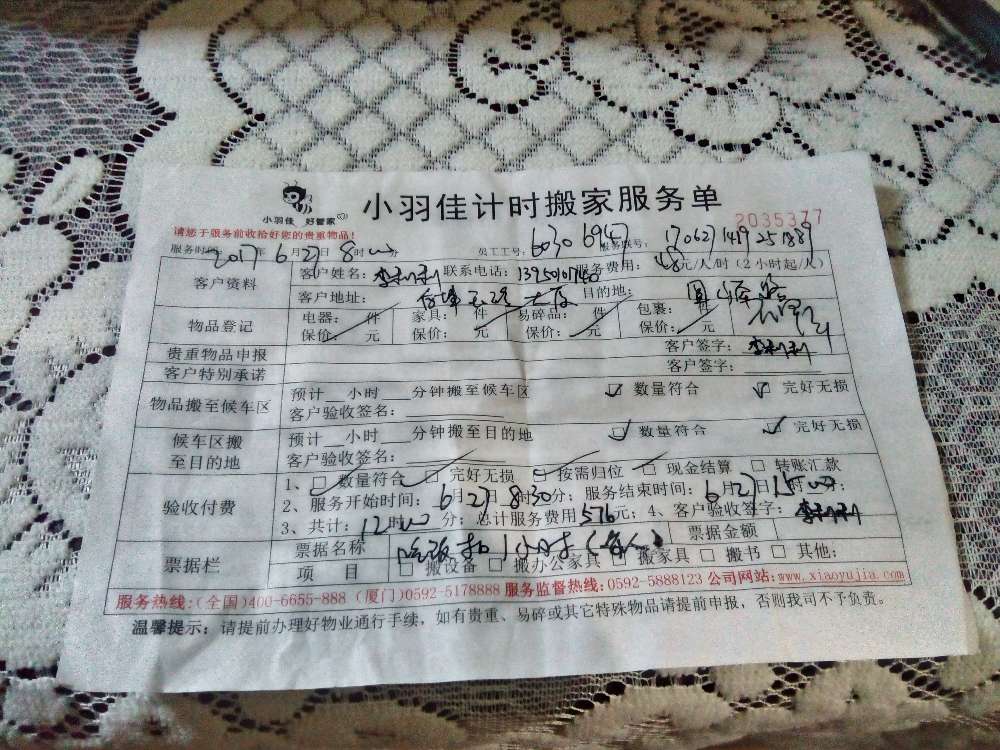 小羽佳 好管家
小羽佳计时搬家服务单
2035377
请您于服务前收拾好您的贵重物品!
服务时间: 2017年6月27日8时00分 员工工号: 服务账号:
客户资料 客户姓名: 联系电话: 服务费用: 48元/人/时(2小时起/人)
客户地址: 目的地:
物品登记 电器: 件 家具: 件 易碎品: 件 包裹: 件
保价: 元 保价: 元 保价: 元 保价: 元
贵重物品申报 客户签字:
客户特别承诺 客户签字:
物品搬至候车区 预计__小时___分钟搬至候车区 ☑ 数量符合 ☑ 完好无损
客户验收签名:
候车区搬至目的地 预计__小时___分钟搬至目的地 ☑ 数量符合 ☑ 完好无损
客户验收签名:
验收付费 1、☑ 数量符合 ☑ 完好无损 ☑ 按需归位 ☑ 现金结算 □ 转账汇款
2、服务开始时间: 6月27日8时30分; 服务结束时间: 6月27日15时00分;
3、共计: 12时00分; 总计服务费用576元; 4、客户验收签字:
票据栏 票据名称 1小时 票据金额
项 目 □ 搬设备 □ 搬办公家具 □ 搬家具 □ 搬书 □ 其他:
服务热线:(全国)400-6655-888 (厦门)0592-5178888 服务监督热线:0592-5888123 公司网站:www.xiaoyujia.com
温馨提示: 请提前办理好物业通行手续, 如有贵重、易碎或其它特殊物品请提前申报, 否则我司不予负责。